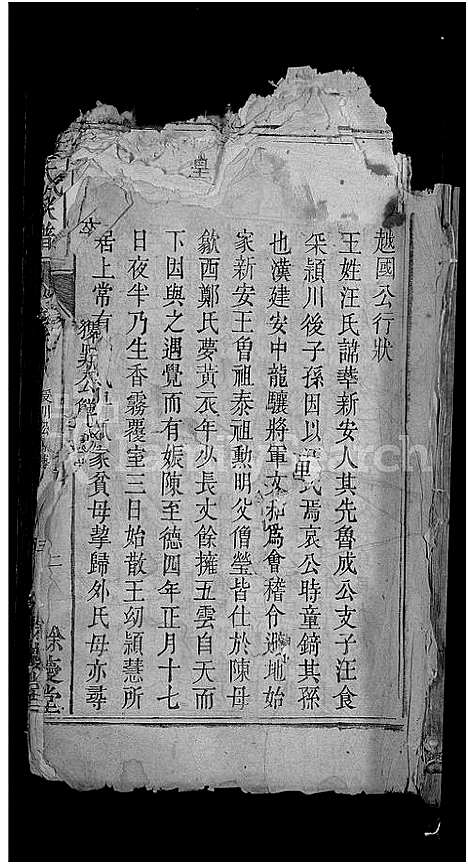 越國公行狀
王姓汪氏諱華新安人其先魯成公支子汪食
采潁川後子孫因以爲氏焉哀公時童錡其孫
也漢建安中龍驤將軍文和爲會稽令避地始
家新安王曾祖泰祖勳明父僧瑩皆仕於陳母
歙西鄭氏夢黃衣年少長丈餘擁五雲自天而
下因與之遇覺而有娠陳至德四年正月十七
日夜半乃生香霧覆室三日始散王幼穎慧所
居上常有 家貧母挈歸外氏母亦尋
氏族譜
二
餘慶堂
FamilySearch